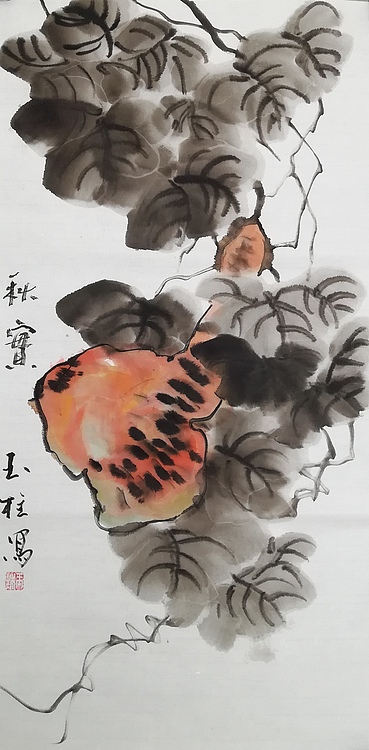 秋實
玉柱寫